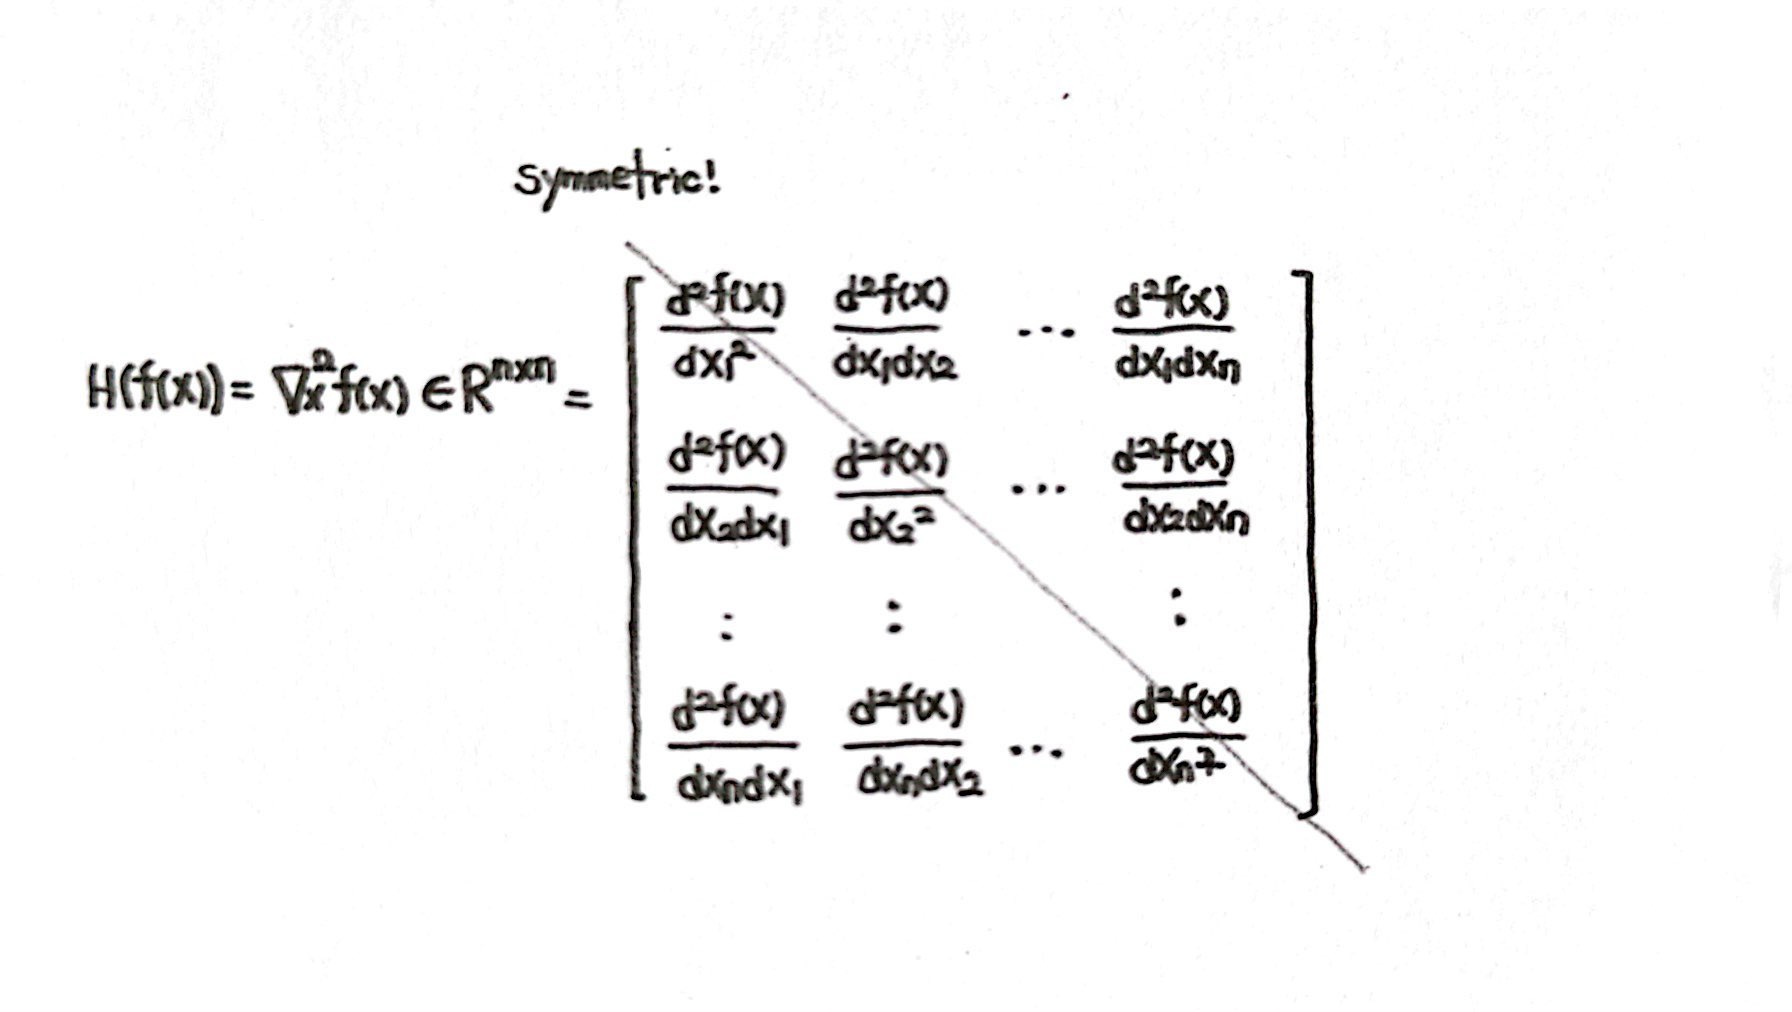 Symmetric!
H(f(x)) = ∇x²f(x) ∈ Rⁿˣⁿ =
d²f(x)/dx₁² d²f(x)/dx₁dx₂ ... d²f(x)/dx₁dxₙ
d²f(x)/dx₂dx₁ d²f(x)/dx₂² ... d²f(x)/dx₂dxₙ
: : :
d²f(x)/dxₙdx₁ d²f(x)/dxₙdx₂ ... d²f(x)/dxₙ²